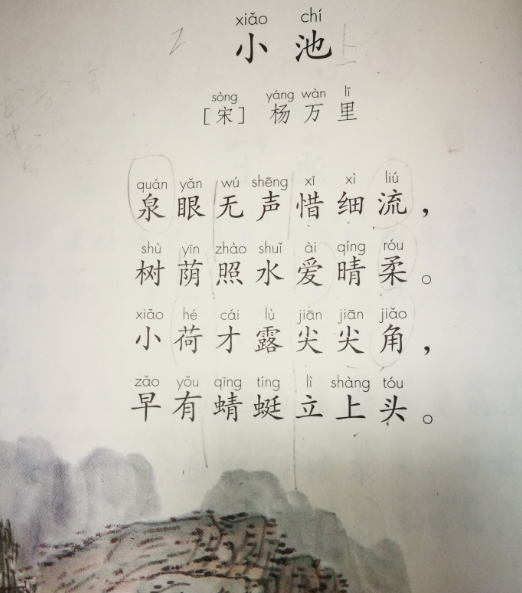 xiǎo chí
小池
sòng yáng wàn lǐ
[宋] 杨万里
quán yǎn wú shēng xī xì liú
泉眼无声惜细流，
shù yīn zhào shuǐ ài qíng róu
树荫照水爱晴柔。
xiǎo hé cái lù jiān jiān jiǎo
小荷才露尖尖角，
zǎo yǒu qīng tíng lì shàng tóu
早有蜻蜓立上头。